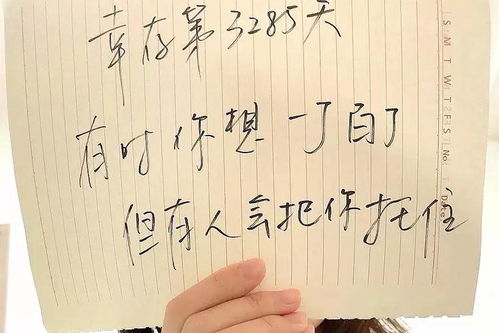 幸存第3285天
有时你想一了百了
但有人会把你托住
S M T W T F S
No.
Date